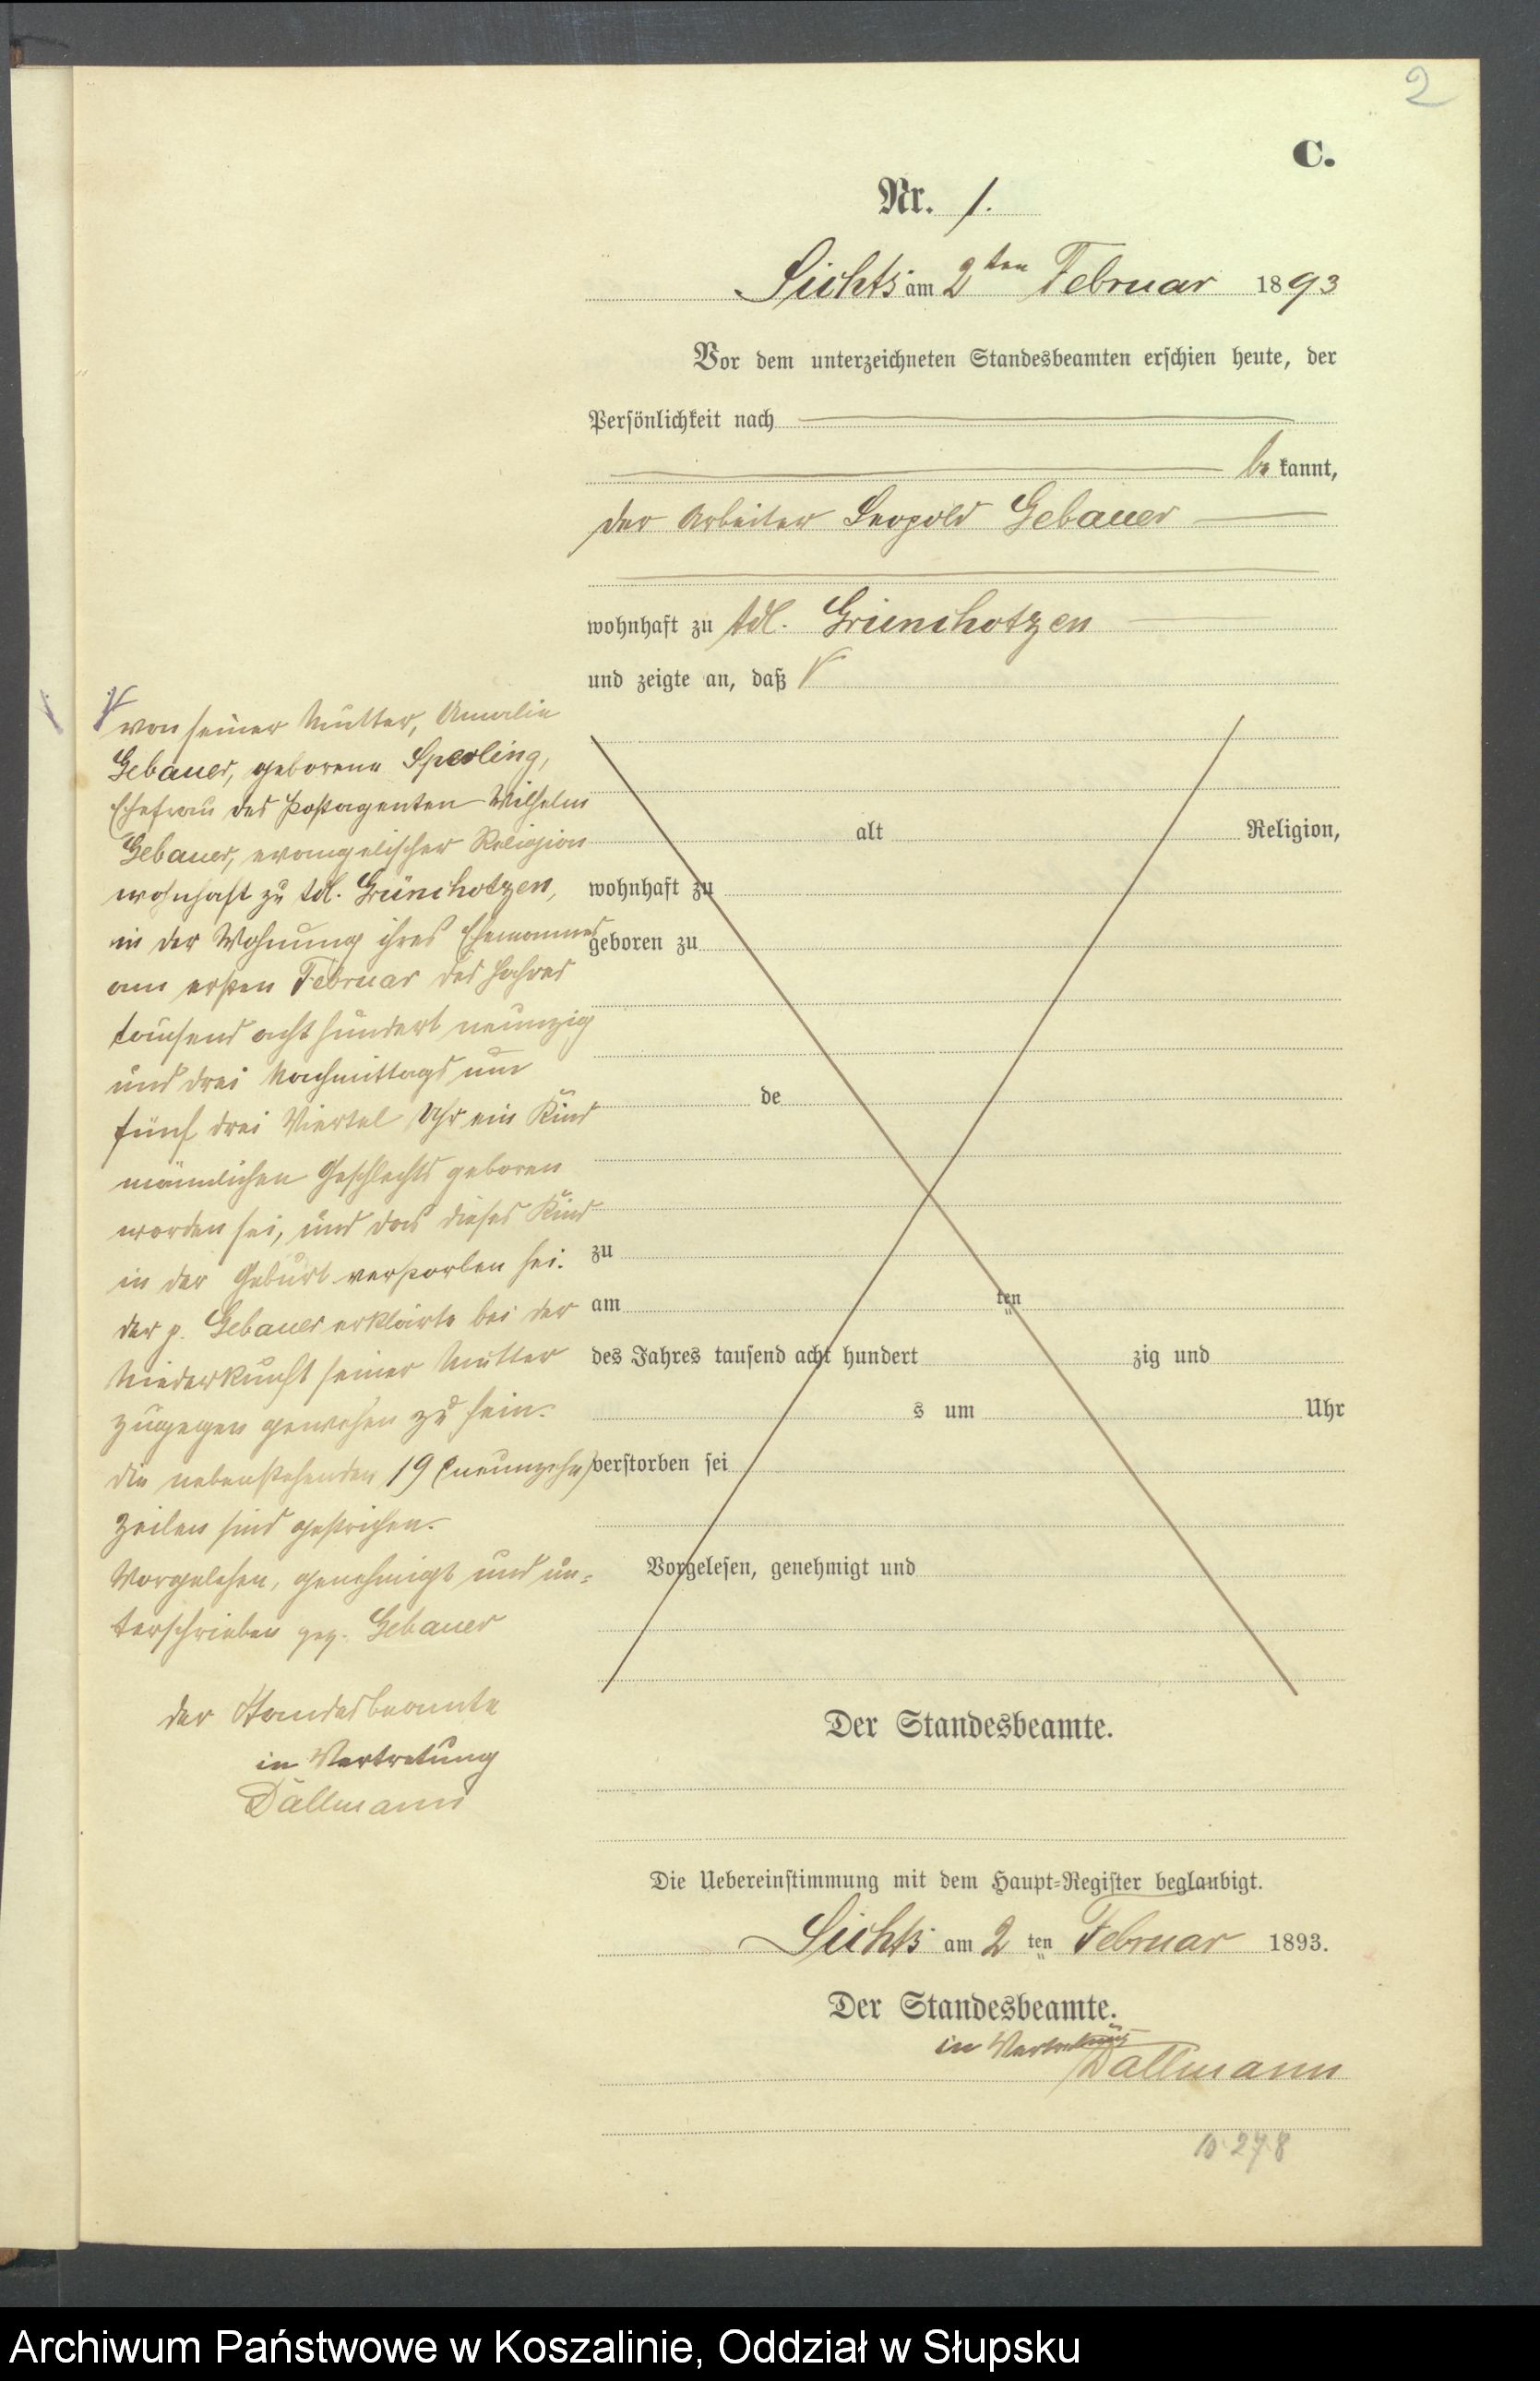 2
C.
Nr. 1.
Lichts am 2ten Februar 1893
Vor dem unterzeichneten Standesbeamten erschien heute, der
Persönlichkeit nach
be kannt,
der Arbeiter Leopold Gebauer
wohnhaft zu Adl. Grünchotzen
und zeigte an, daß
von seiner Mutter, Amalie
Gebauer, geborene Sperling,
Ehefrau des Postagenten Wilhelm
Gebauer, evangelischer Religion
wohnhaft zu Adl. Grünchotzen,
in der Wohnung ihres Ehemannes
am ersten Februar des Jahres
tausend acht hundert neunzig
und drei Nachmittags um
fünf drei Viertel Uhr ein Kind
männlichen Geschlechts geboren
worden sei, und das dieses Kind
in der Geburt verstorben sei.
der p. Gebauer erklärte bei der
Niederkunft seiner Mutter
zugegen gewesen zu sein.
die nebenstehenden 19 (neunzehn)
Zeilen sind gestrichen.
Vorgelesen, genehmigt und un=
terschrieben gez. Gebauer
der Standesbeamte
in Vertretung
Dallmann
alt Religion,
wohnhaft zu
geboren zu
de
zu
am ten
des Jahres tausend acht hundert zig und
s um Uhr
verstorben sei
Vorgelesen, genehmigt und
Der Standesbeamte.
Die Uebereinstimmung mit dem Haupt=Register beglaubigt.
Lichts am 2 ten Februar 1893.
Der Standesbeamte.
in Vertretung
Dallmann
10.27.8
Archiwum Państwowe w Koszalinie, Oddział w Słupsku